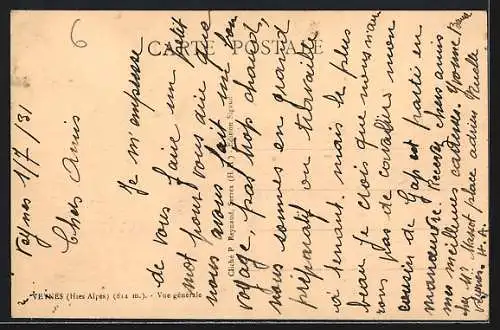 6
CARTE POSTALE
Veynes 1/7/31
Chers Amis
Je m'empresse
de vous faire un petit
mot pour vous dire que
nous avons fait un bon
voyage pas trop chaud,
nous sommes en grand
préparatif on travaille
à tenant. mais le plus
beau je crois que nous n'au
rons pas de cavaliers mon
cousin de Gap est parti en
manœuvre. Recevez chers amis
mes meilleures caresses. Yvonne
chez Mr Marrot place adrien Ruelle
Veynes H. A.
Cliché P. Reynaud, Serres (H.-A.) Édition Signoret
VEYNES (Htes Alpes) (814 m.). - Vue générale